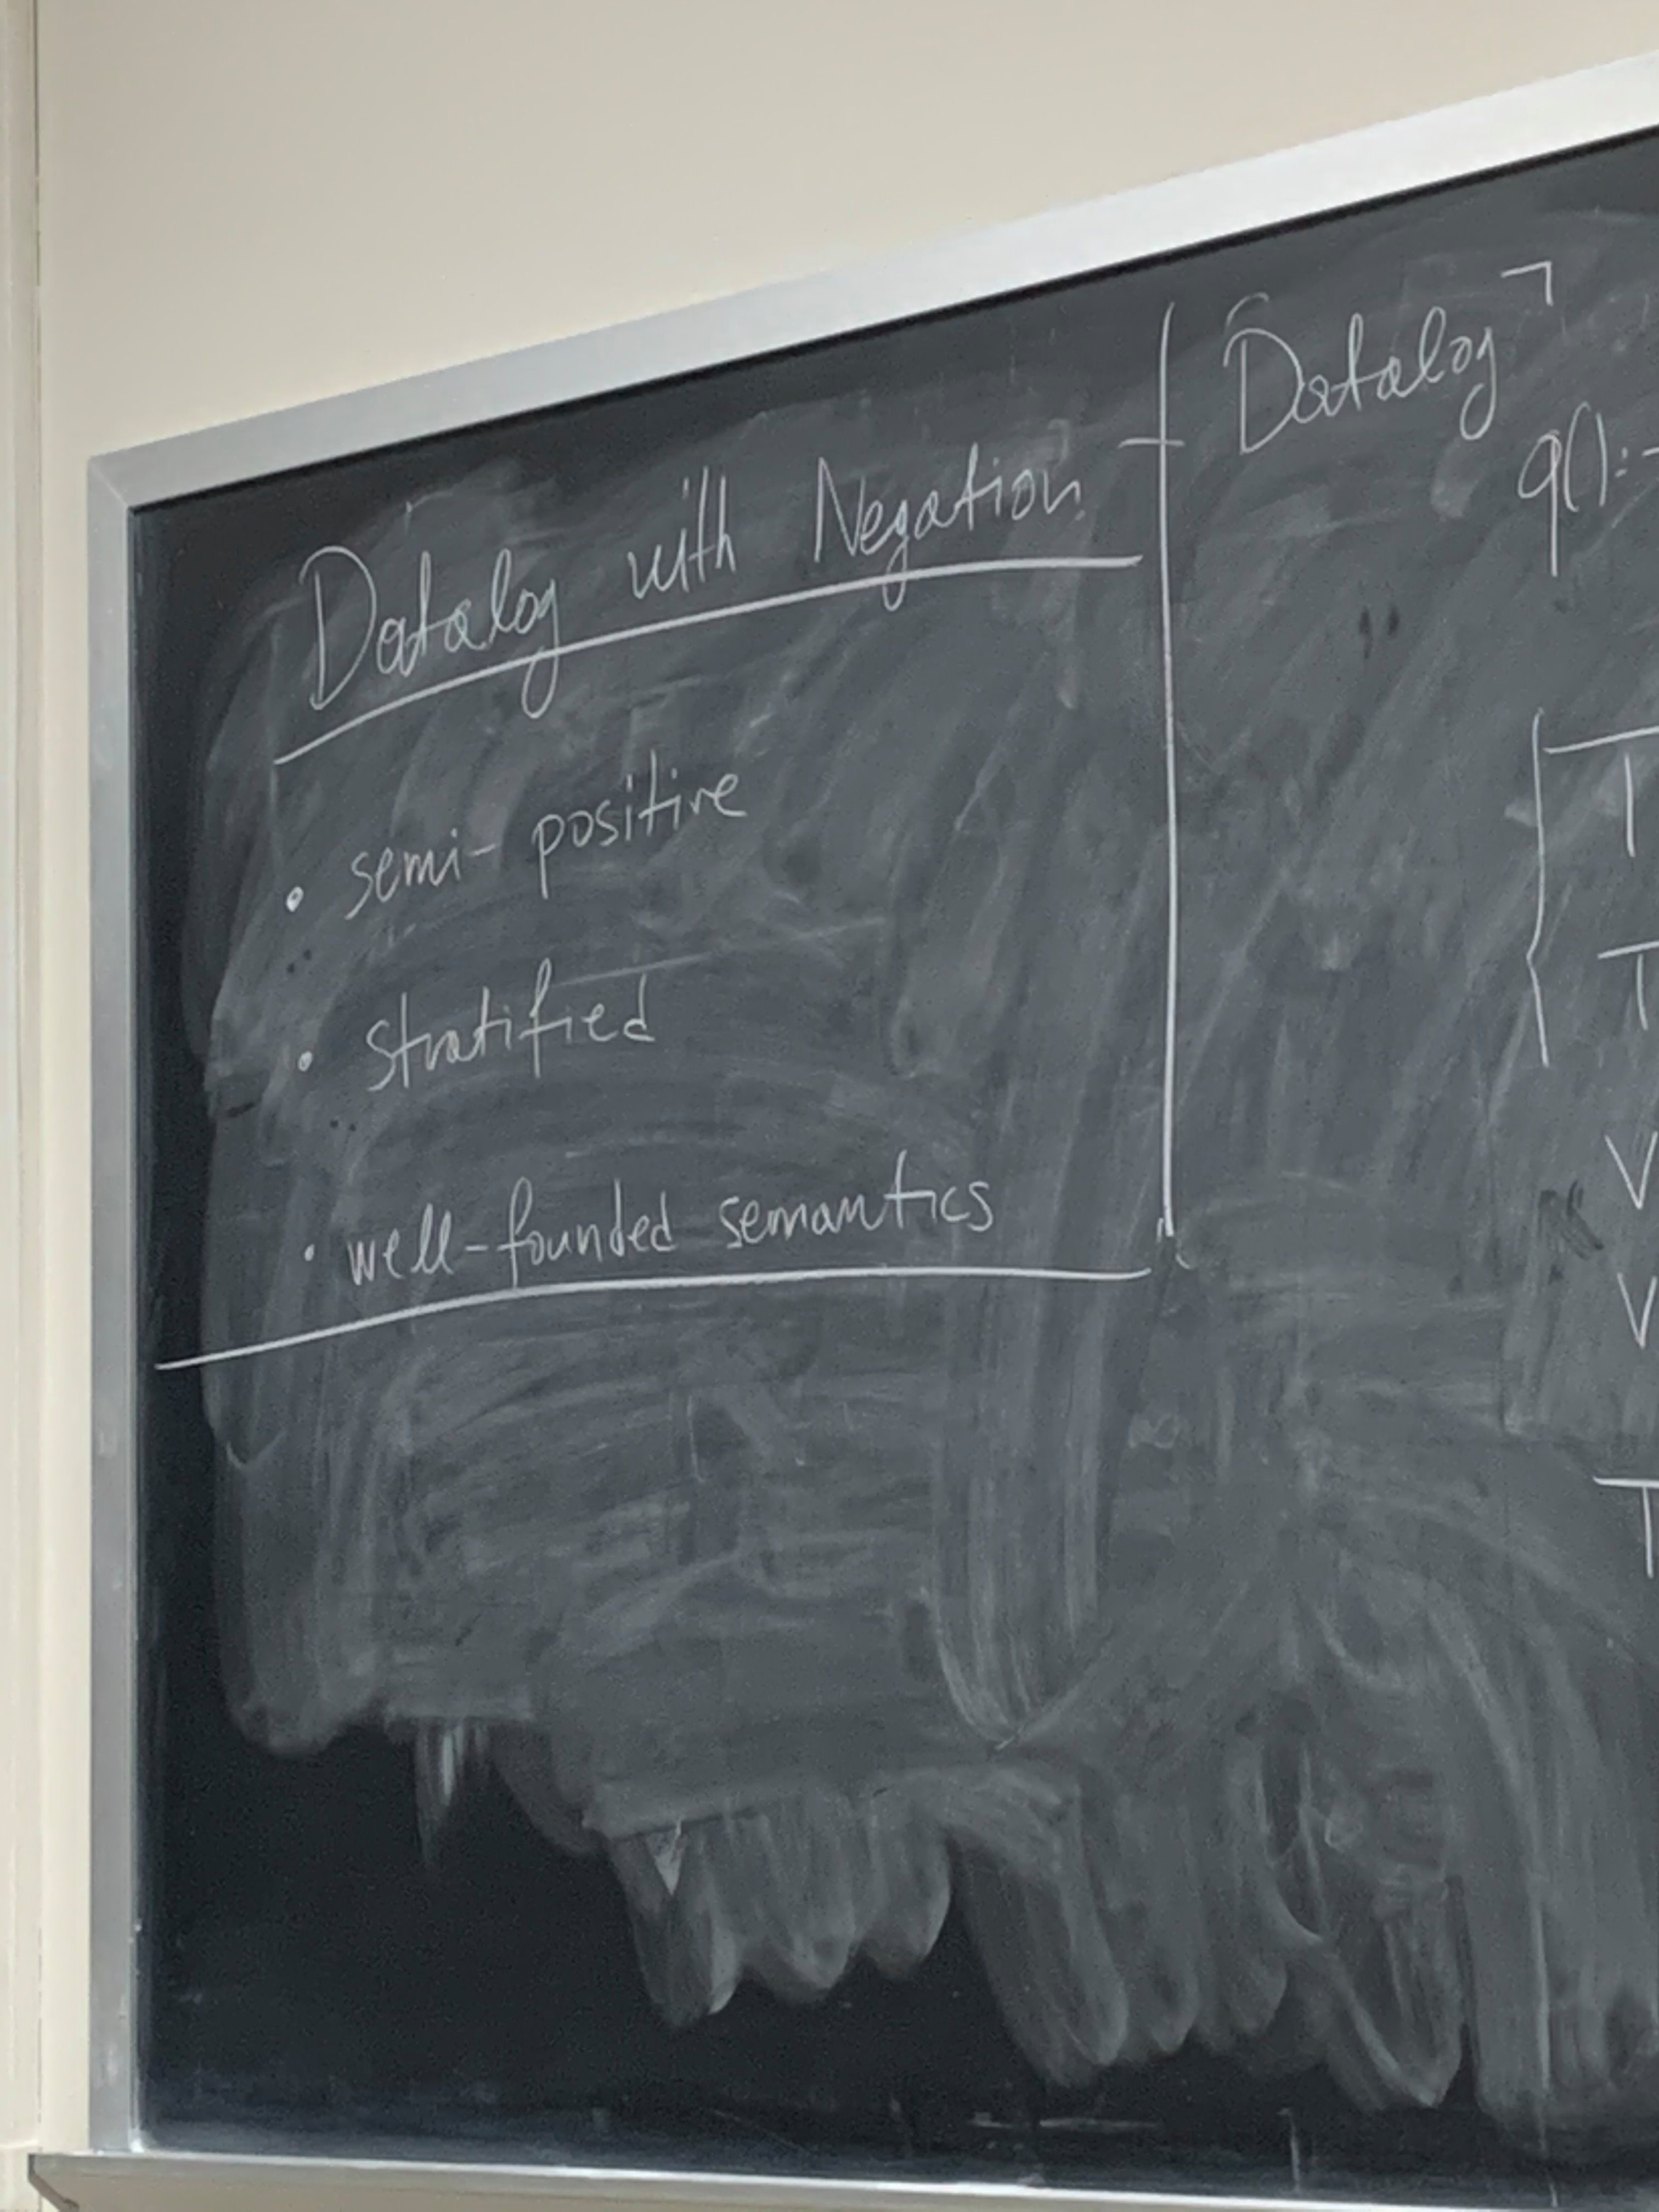 Datalog with Negation
• semi-positive
• stratified
• well-founded semantics
Datalog ¬
q() :-
T
T
V
V
T